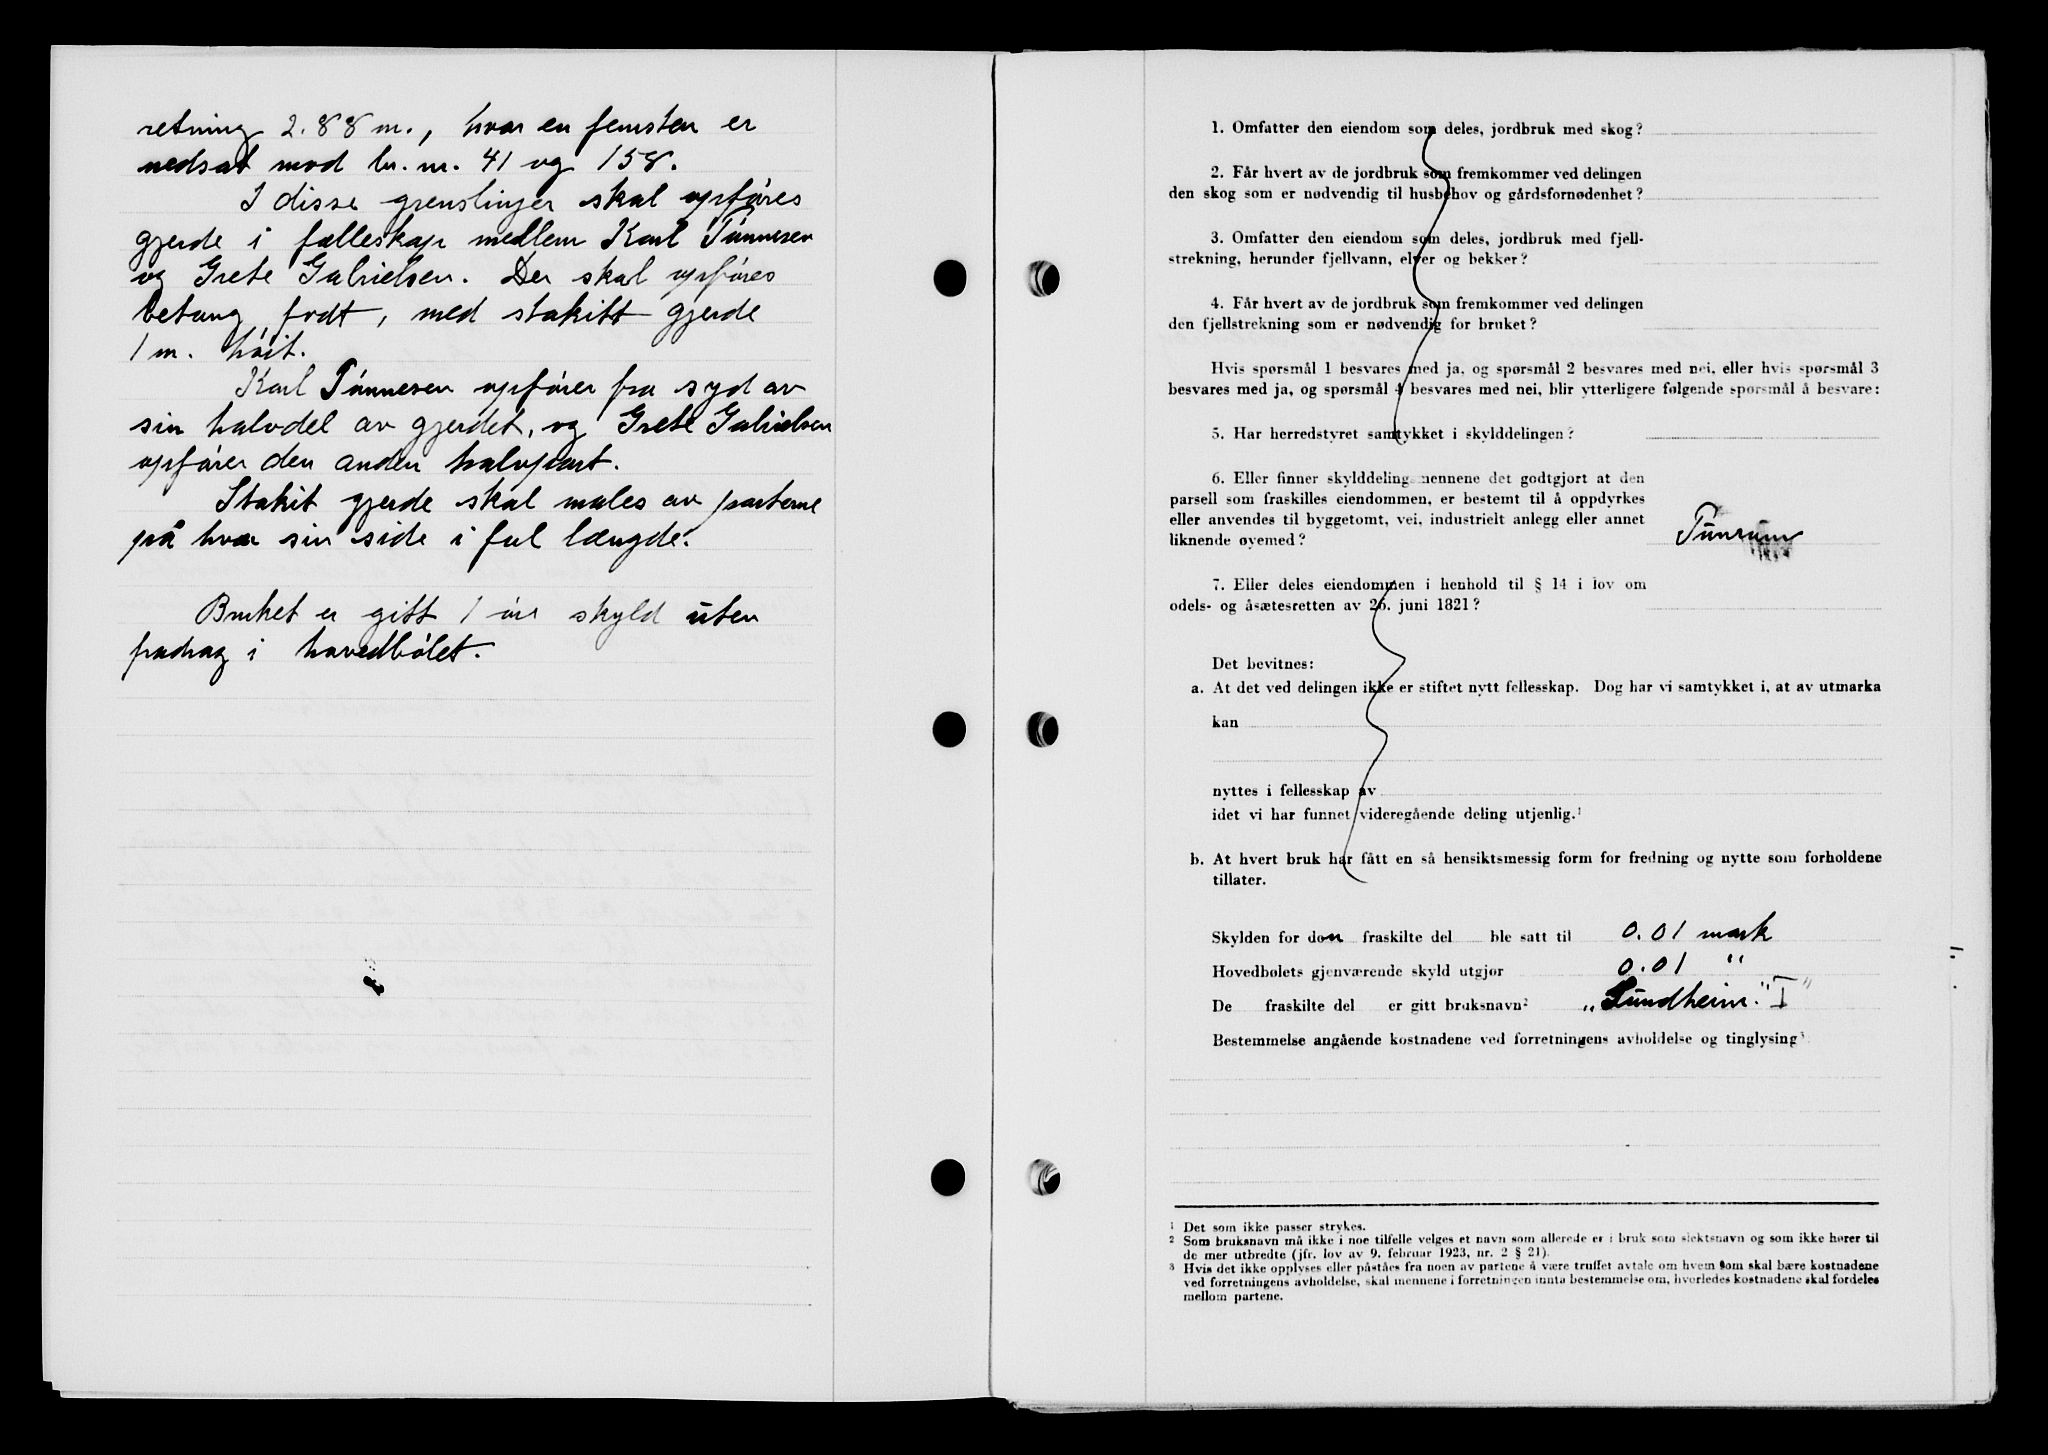 retning 2.88 m., hvor en femsten er
nedsat mod br. nr. 41 og 158.
I disse grenslinjer skal opføres
gjerde i fælleskap mellem Karl Tønnesen
og Grete Gabrielsen. Der skal opføres
betong fodt, med stakitt gjerde
1 m. høit.
Karl Tønnesen opfører fra syd av
sin halvdel av gjerdet, og Grete Gabrielsen
opfører den anden halvpart.
Stakit gjerde skal males av parterne
på hver sin side i ful længde.
Bruket er gitt 1 øre skyld uten
fradrag i hovedbølet.
1. Omfatter den eiendom som deles, jordbruk med skog?
2. Får hvert av de jordbruk som fremkommer ved delingen
den skog som er nødvendig til husbehov og gårdsfornødenhet?
3. Omfatter den eiendom som deles, jordbruk med fjell-
strekning, herunder fjellvann, elver og bekker?
4. Får hvert av de jordbruk som fremkommer ved delingen
den fjellstrekning som er nødvendig for bruket?
Hvis spørsmål 1 besvares med ja, og spørsmål 2 besvares med nei, eller hvis spørsmål 3
besvares med ja, og spørsmål 4 besvares med nei, blir ytterligere følgende spørsmål å besvare:
5. Har herredstyret samtykket i skylddelingen?
6. Eller finner skylddelingsmennene det godtgjort at den
parsell som fraskilles eiendommen, er bestemt til å oppdyrkes
eller anvendes til byggetomt, vei, industrielt anlegg eller annet
liknende øyemed?
7. Eller deles eiendommen i henhold til § 14 i lov om
odels- og åsætesretten av 26. juni 1821?
Det bevitnes:
a. At det ved delingen ikke er stiftet nytt fellesskap. Dog har vi samtykket i, at av utmarka
kan
nyttes i fellesskap av
idet vi har funnet videregående deling utjenlig.¹
b. At hvert bruk har fått en så hensiktsmessig form for fredning og nytte som forholdene
tillater.
Skylden for den fraskilte del ble satt til 0.01 mark
Hovedbølets gjenværende skyld utgjør 0.01 "
De fraskilte del er gitt bruksnavn² „Sundheim." I"
Bestemmelse angående kostnadene ved forretningens avholdelse og tinglysing³:
¹ Det som ikke passer strykes.
² Som bruksnavn må ikke i noe tilfelle velges et navn som allerede er i bruk som slektsnavn og som ikke hører til
de mer utbredte (jfr. lov av 9. februar 1923, nr. 2 § 21).
³ Hvis det ikke opplyses eller påståes fra noen av partene å være truffet avtale om hvem som skal bære kostnadene
ved forretningens avholdelse, skal mennene i forretningen innta bestemmelse om, hvorledes kostnadene skal fordeles
mellom partene.